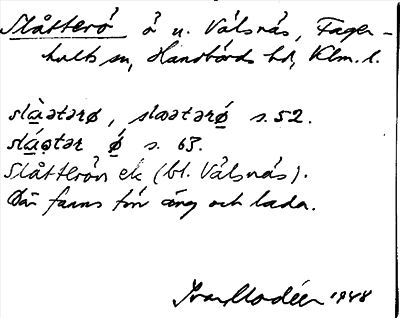 Slåtterö ö u. Välsnäs, Fager-
hults sn, Handbörds hd, Klm. l.
slàətərø, slæətərǿ s. 52.
sláotər ǿ s. 63.
Slåtterön ek (bl. Välsnäs).
Där fanns förr äng och lada.
Ivar Modéer 1948